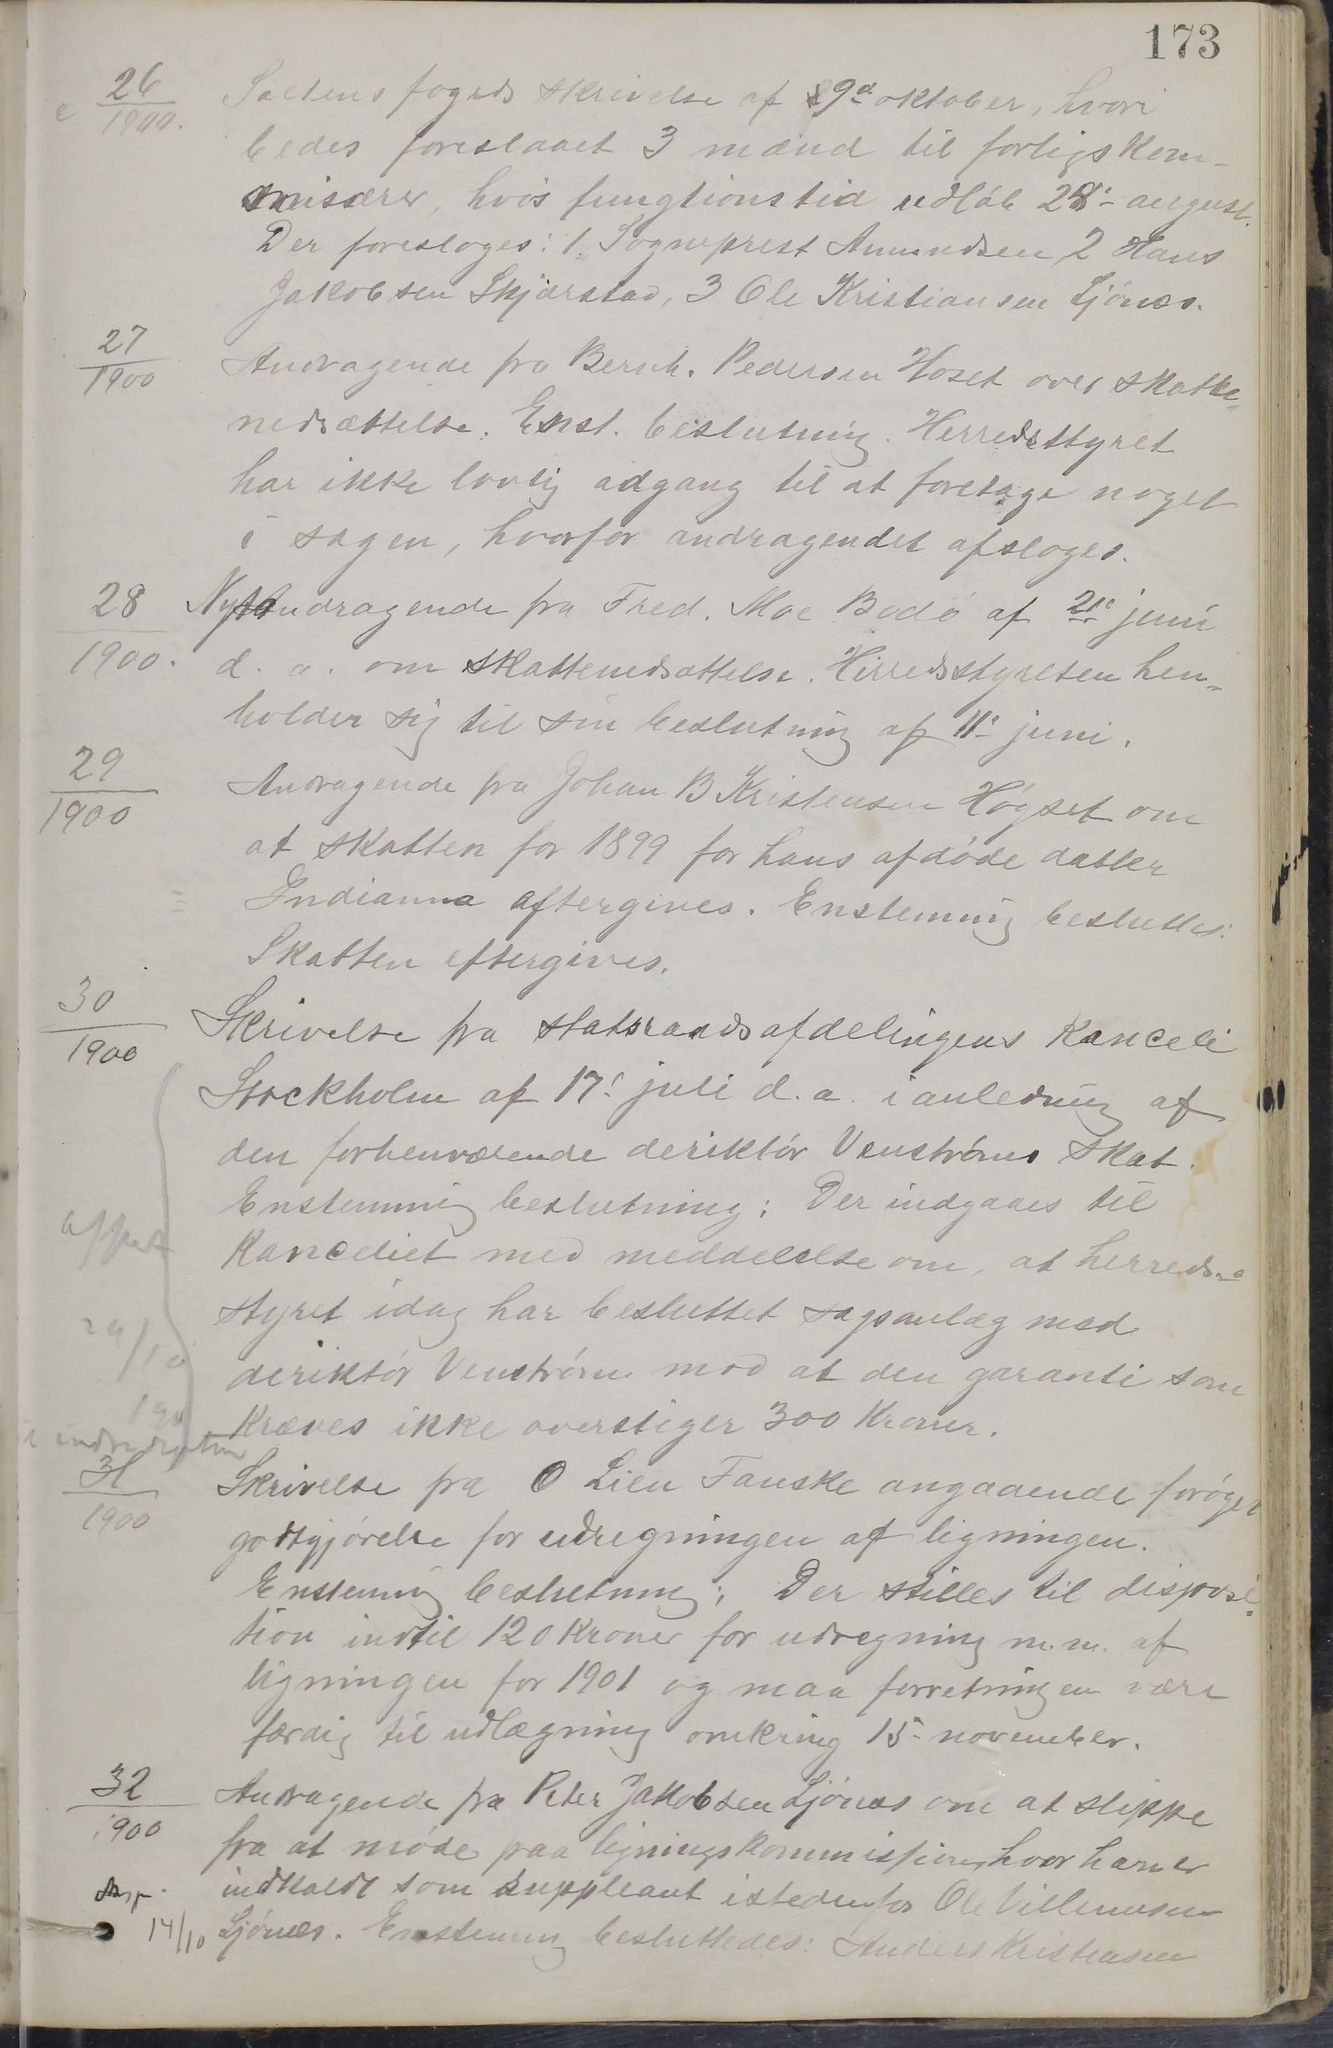 173
26
1900.
Saltens fogeds skrivelse af 9de oktober, hvori
bedes foreslaaet 3 mænd til forligskom-
misærer, hvis fungtionstid udløb 28de august.
Der foresloges: 1. Sogneprest Amundsen 2 Hans
Jakobsen Skjærstad, 3 Ole Kristiansen Ljönes.
27
1900
Andragende fra Bernh. Pedersen Hoset over skatte-
nedsættelse. Enst. beslutning. Herredsstyret
har ikke lovlig adgang til at foretage noget
i sagen, hvorfor andragendet afsloges.
28
1900.
Nyt andragende fra Fred. Moe Bodö af 21de juni
d. a. om skattenedsættelse. Herredsstyreten hen-
holder sig til sin beslutning af 11te juni.
29
1900
Andragende fra Johan B Kristensen Høgset om
at skatten for 1899 for hans afdøde datter
Indianna aftergives. Enstemmig besluttes:
Skatten eftergives.
30
1900
Skrivelse fra statsraadsafdelingens Kanceli
Stockholm af 17de juli d. a. i anledning af
den forhenværende deriktör Venströms skat.
Enstemmig beslutning: Der indgaaes til
Kanceliet med meddelelse om, at herreds-
styret idag har besluttet sagsanlæg med
deriktör Venström mod at den garanti som
kræves ikke overstiger 300 Kroner.
29/10
31
1900
Skrivelse fra O Lien Fauske angaaende forøget
godtgjörelse for udregningen af ligningen.
Enstemmig beslutning: Der stilles til disposi-
tion indtil 120 Kroner for udregning m.m. af
ligningen for 1901 og maa forretningen være
færdig til udlægning omkring 15- november.
32
1900
14/10
Andragende fra Peter Jakobsen Ljönes om at slippe
fra at møde paa ligningskommissionen, hvor han er
indkaldt som suppleant istedenfor Ole Villumsen
Ljönes. Enstemmig besluttedes: Anders Kristensen